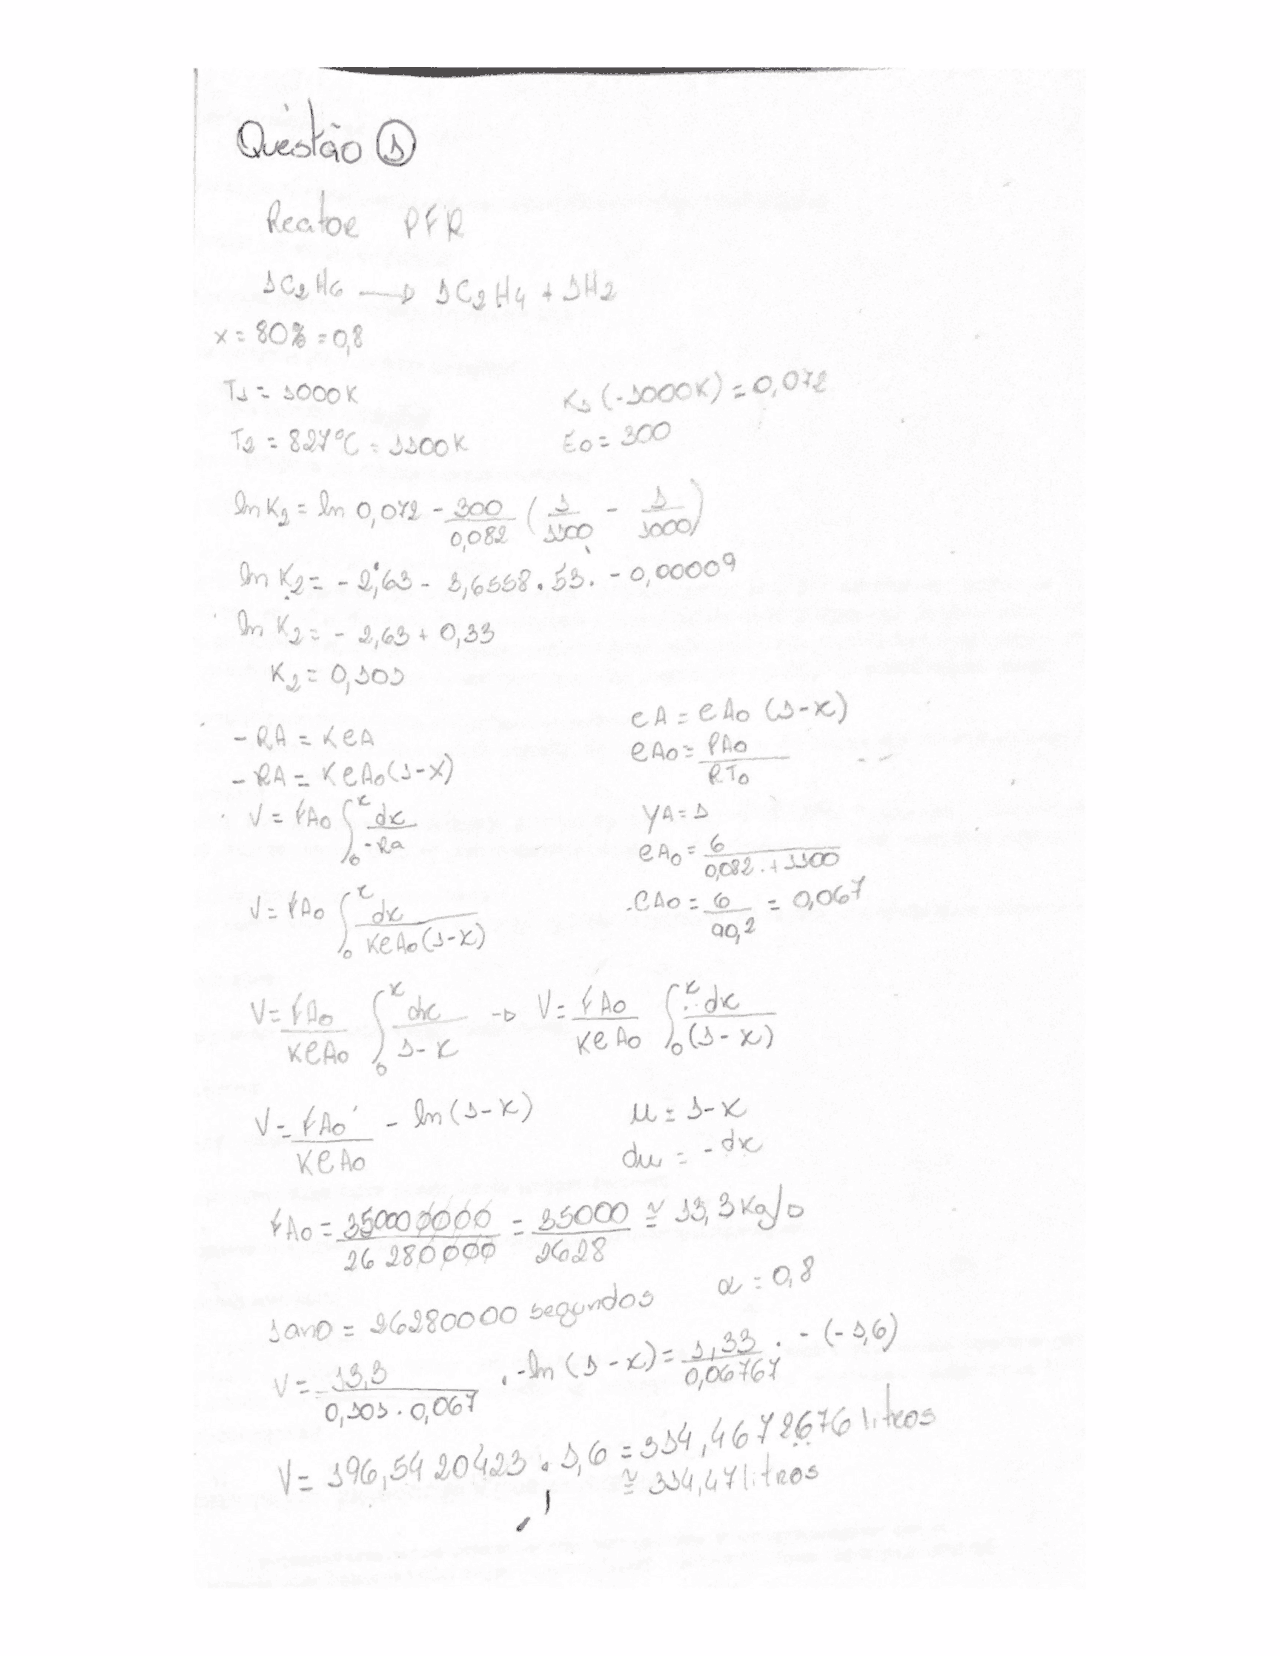 Questão 1
Reator PFR
1C2H6 → 1C2H4 + 1H2
x = 80% = 0,8
T1 = 1000K K1 (-1000K) = 0,072
T2 = 827°C = 1100K E0 = 300
ln K2 = ln 0,072 - 300/0,082 (1/1100 - 1/1000)
ln K2 = - 2,63 - 3,6558.53. - 0,00009
ln K2 = - 2,63 + 0,33
K2 = 0,101
- RA = KCA CA = CA0 (1-x)
- RA = KCA0(1-x) CA0 = PA0/RT0
V = FA0 ∫0^x dx/-Ra YA = 1
CA0 = 6/0,082.+1100
V = FA0 ∫0^x dx/KCA0(1-x) .CA0 = 6/90,2 = 0,067
V = FA0/KCA0 ∫0^x dx/1-x → V = FA0/KCA0 ∫0^x dx/(1-x)
V = FA0/KCA0 - ln (1-x) u = 1-x
du = - dx
FA0 = 350000000/26280000 = 35000/2628 ≅ 13,3 Kg/s
1 ano = 26280000 segundos x = 0,8
V = 13,3/0,101.0,067 . -ln (1-x) = 1,33/0,06767 . - (-1,6)
V = 196,5420423 . 1,6 = 314,4672676 litros
≅ 314,47 litros